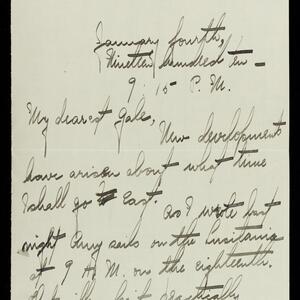 January fourth,
Nineteen hundred ten -
9:15 P.M.
My dearest Gale,
New developments
have arisen about what time
I shall go East. As I wrote last
night Amy sails on the Lusitania
at 9 A.M. on the eighteenth.